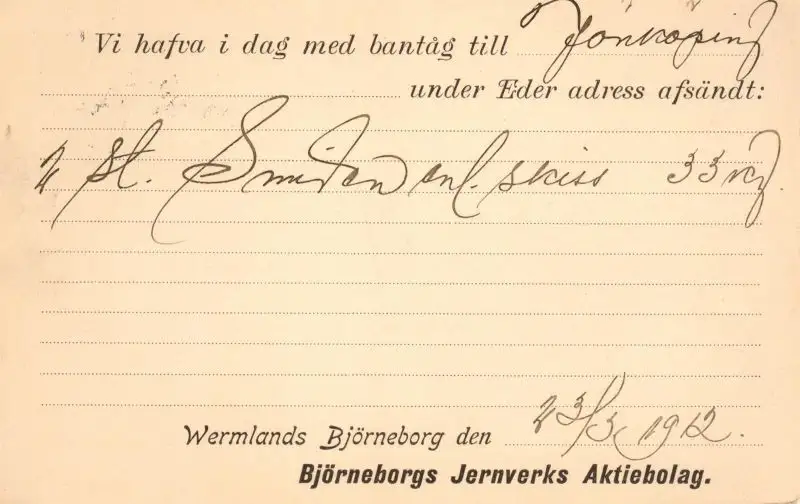 Vi hafva i dag med bantåg till Jönköping
under Eder adress afsändt:
2 st. Smiden enl. skiss 33 kg.
Wermlands Björneborg den 23/3 1912.
Björneborgs Jernverks Aktiebolag.